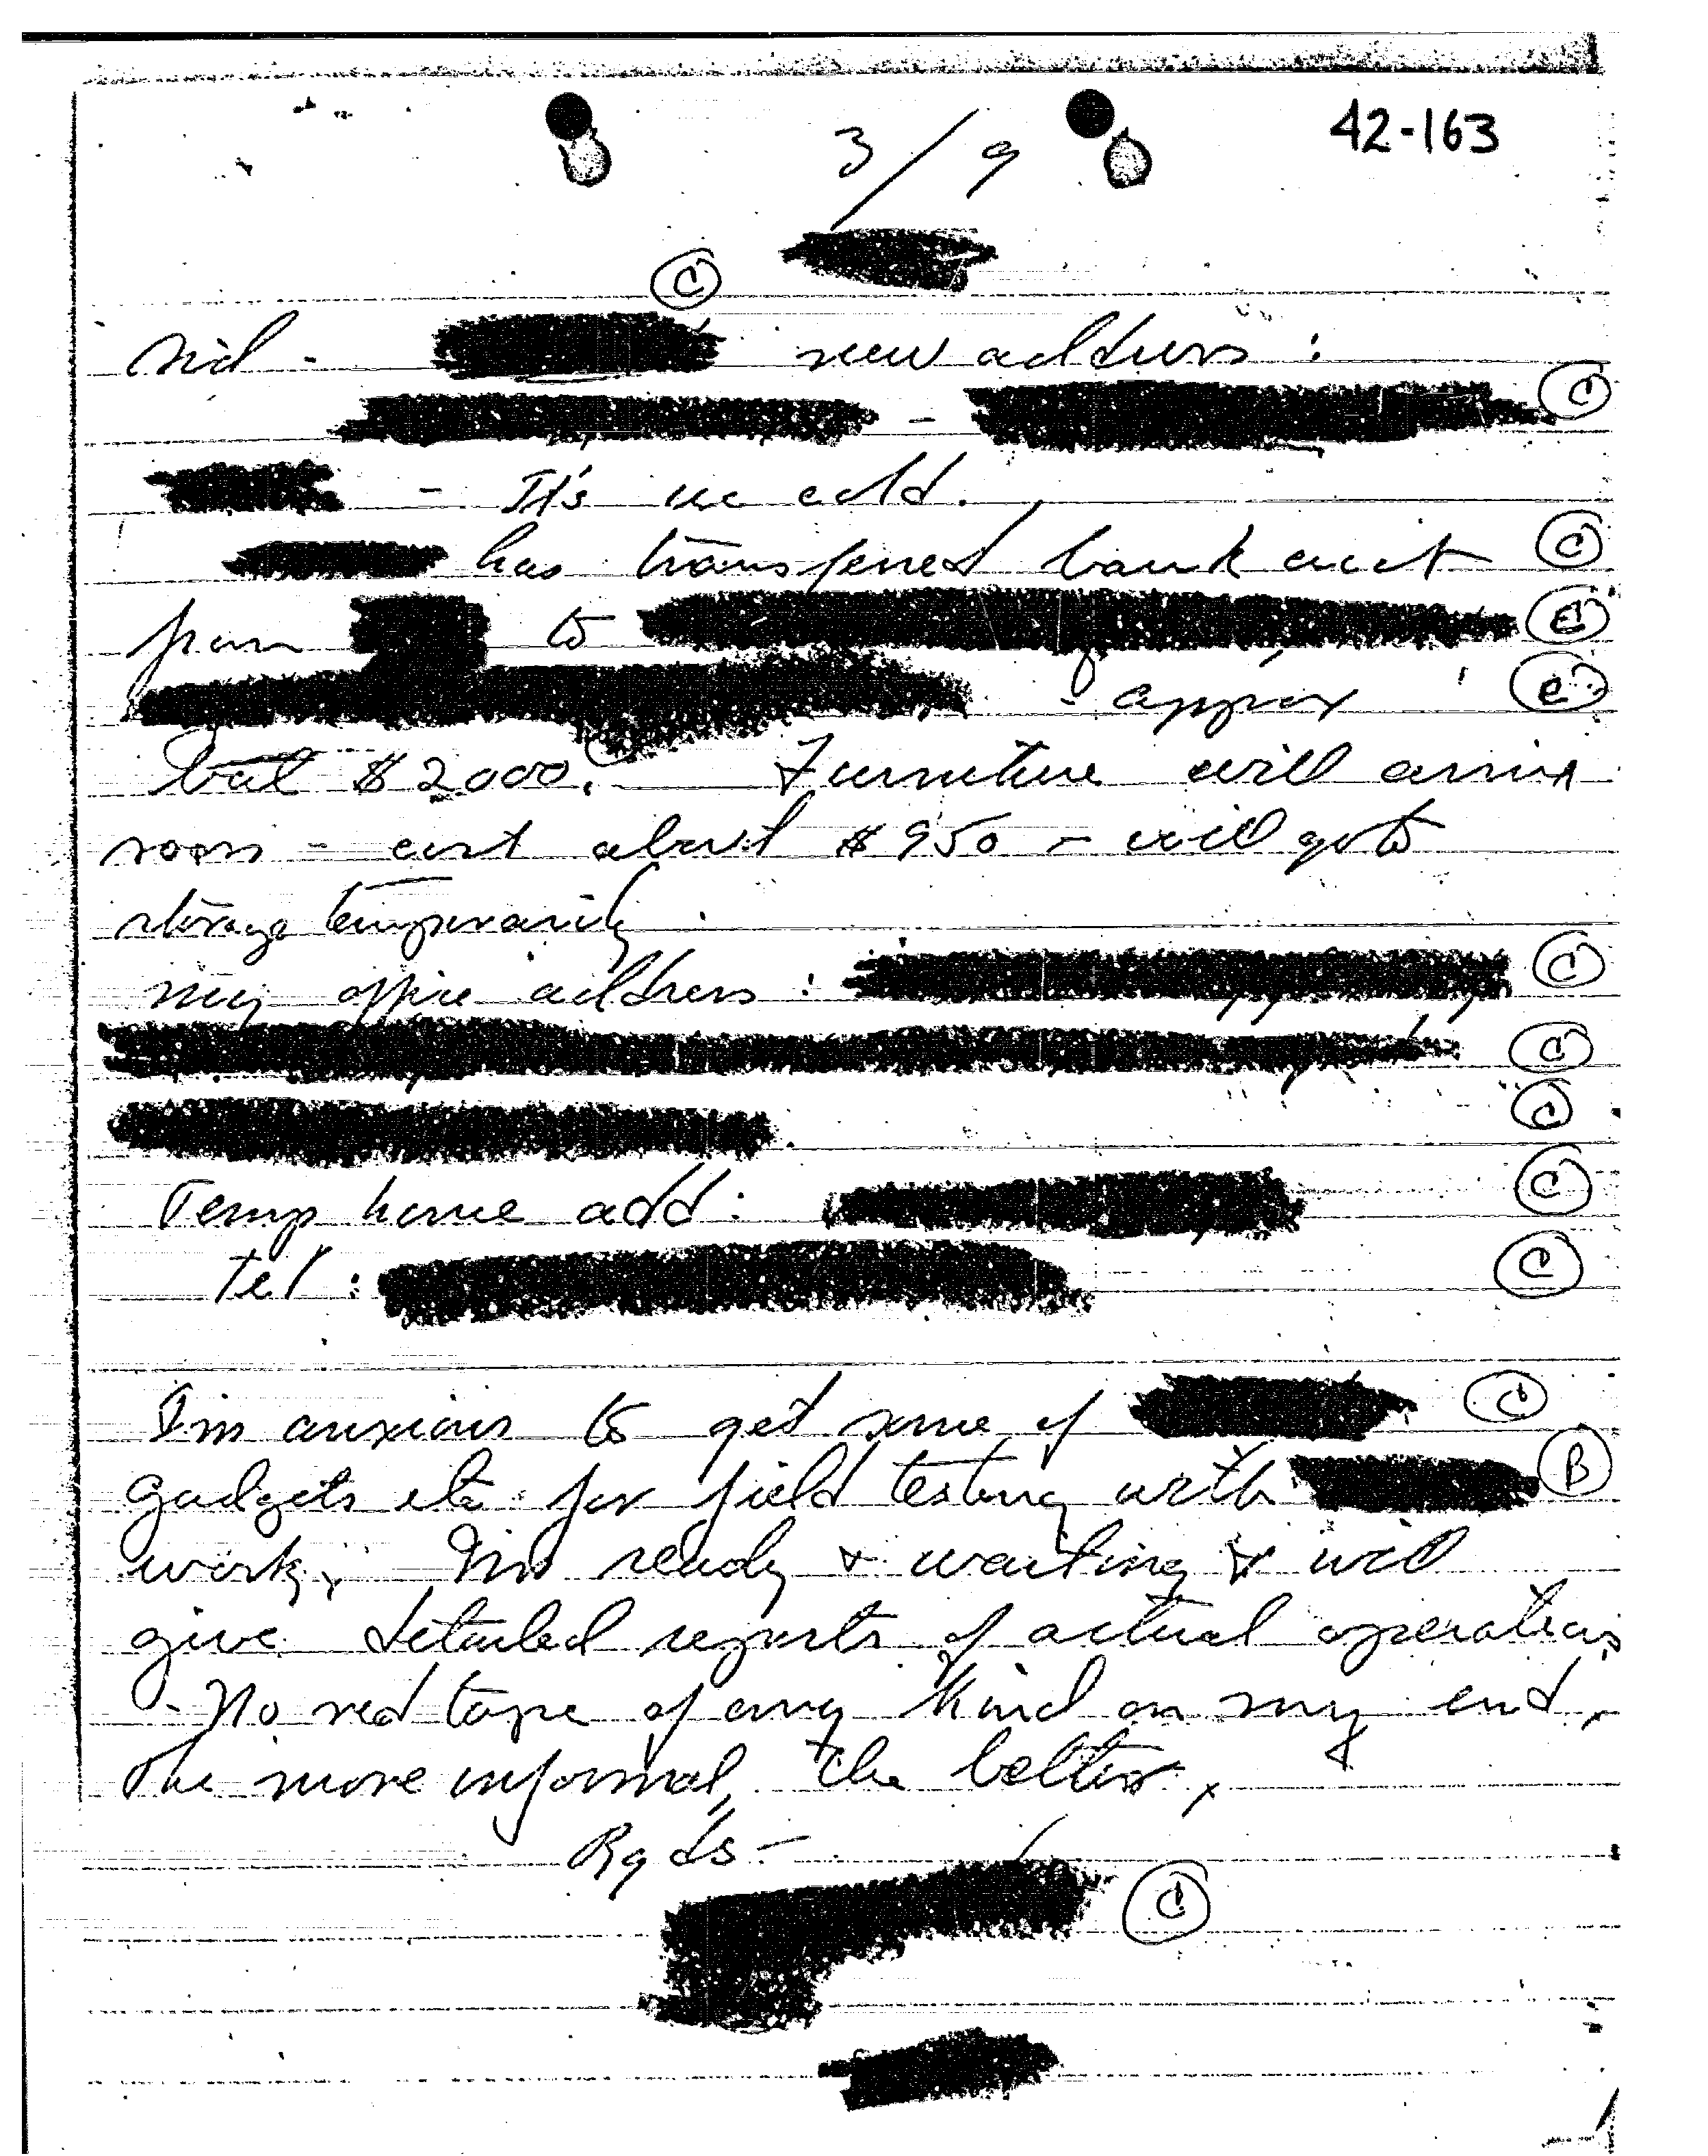 42-163
3/9
C
Sid - new address :
C
-
- It's in add.
has transferred bank acct C
from to C
- approx C
bal $2000. Furniture will arrive
soon - cost about $950 - will go to
storage temporarily.
my office address : C
C
C
Temp home add: C
Tel : C
I'm anxious to get some of C
gadgets etc for field testing with B
work. I'm ready & waiting & will
give detailed reports of actual operations
- No red tape of any kind on my end,
The more informal, the better.
Rgds -
C